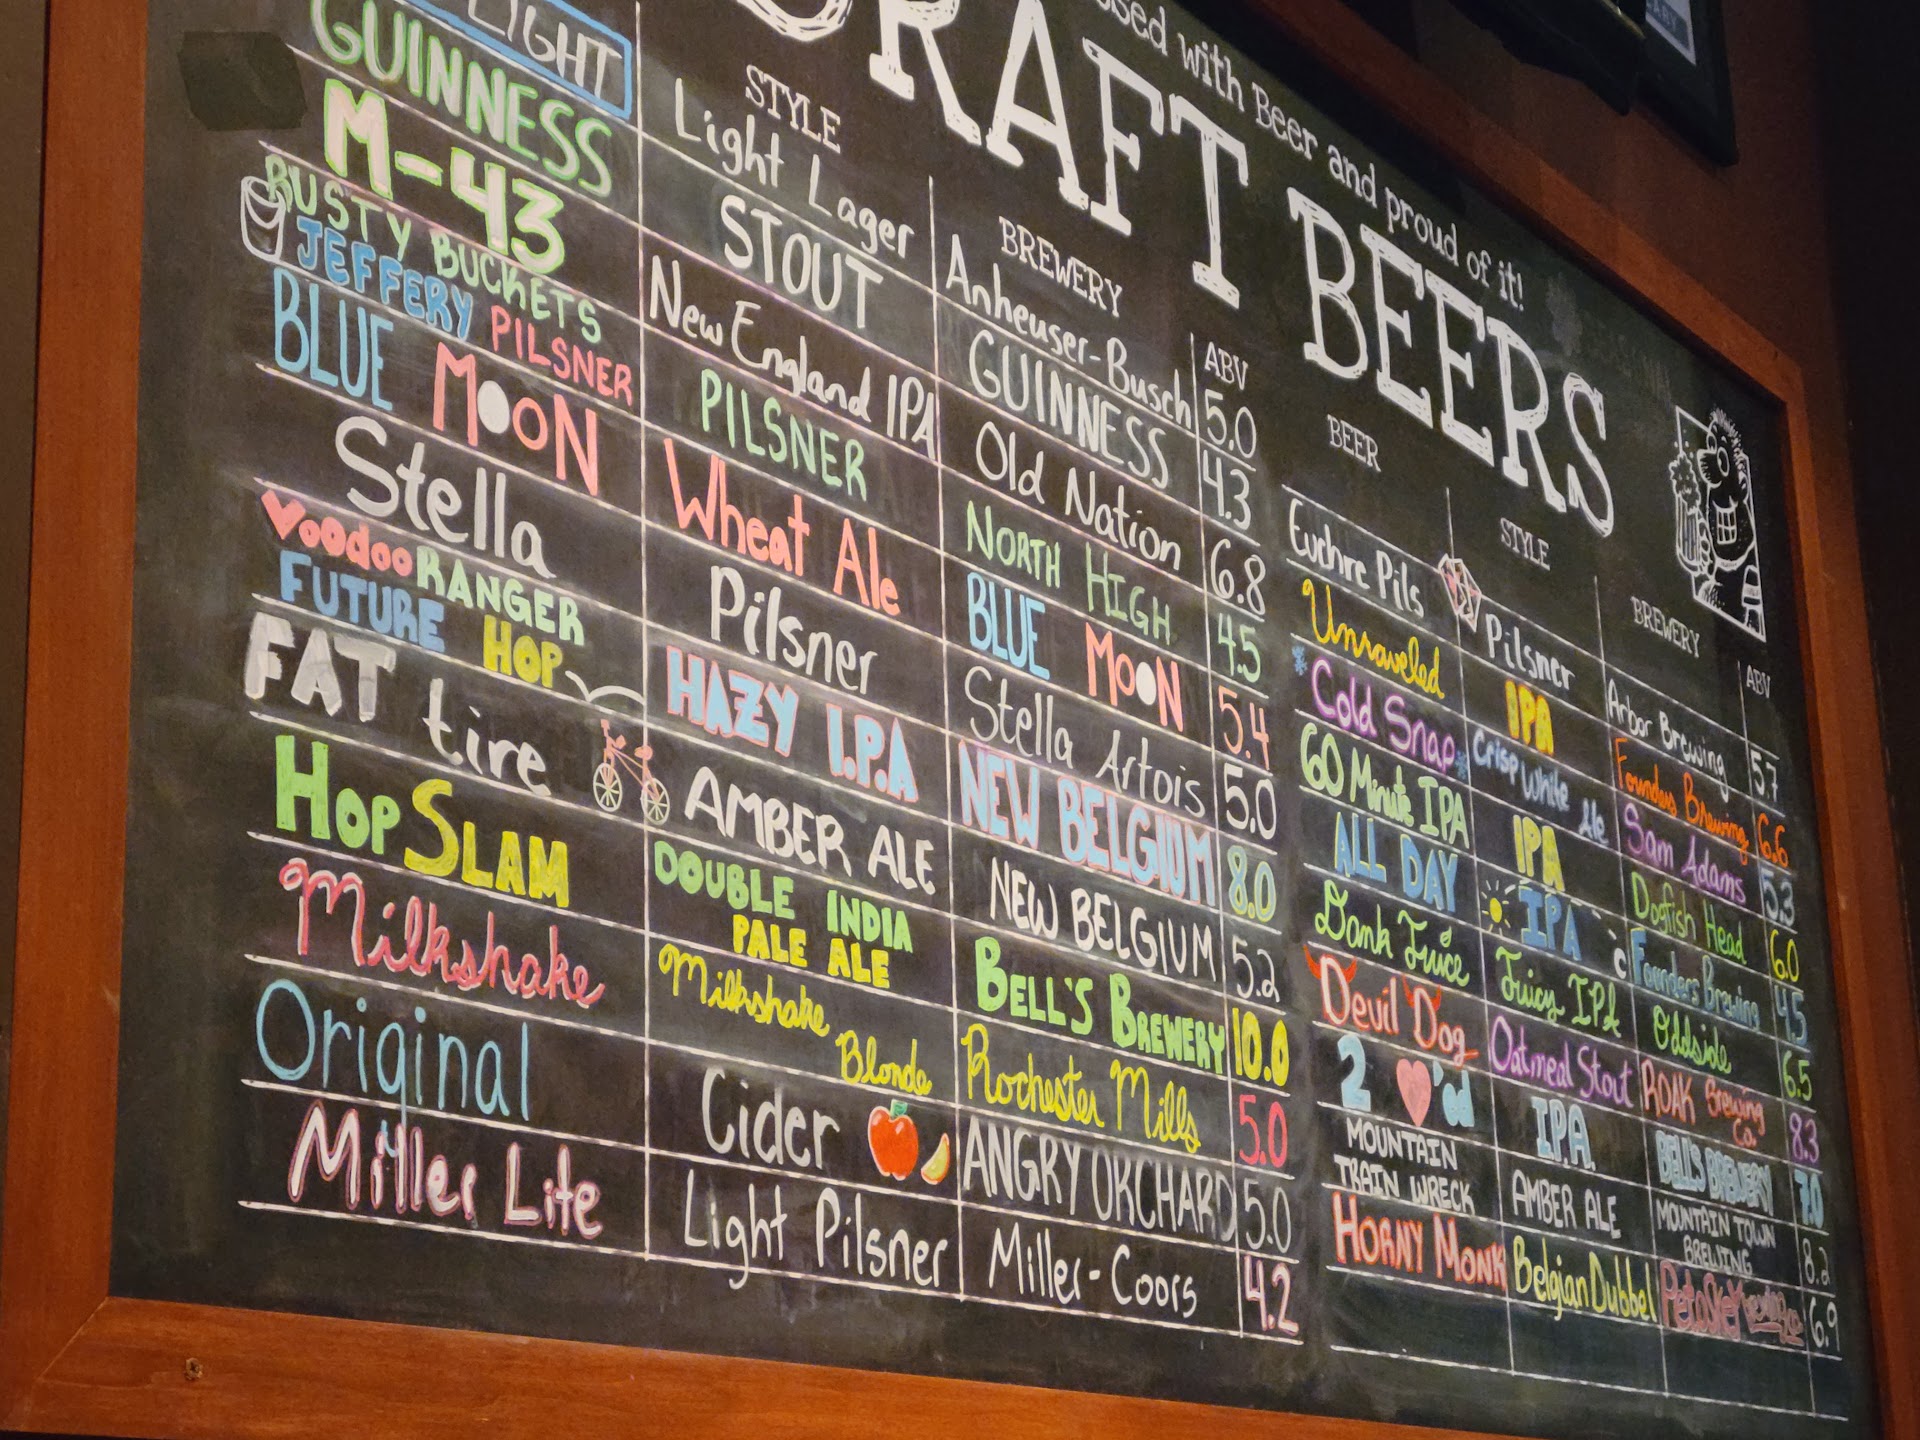 with Beer and proud of it!
CRAFT BEERS
STYLE BREWERY ABV
LIGHT Light Lager Anheuser-Busch 5.0
GUINNESS STOUT GUINNESS 4.3
M-43 New England IPA Old Nation 6.8
RUSTY BUCKETS
JEFFERY PILSNER PILSNER NORTH HIGH 4.5
BLUE MOON Wheat Ale BLUE MOON 5.4
Stella Pilsner Stella Artois 5.0
VOODOO RANGER
FUTURE HOP HAZY I.P.A NEW BELGIUM 8.0
FAT tire AMBER ALE NEW BELGIUM 5.2
HOP SLAM DOUBLE INDIA
PALE ALE BELL'S BREWERY 10.0
Milkshake Milkshake Blonde Rochester Mills 5.0
Original Cider ANGRY ORCHARD 5.0
Miller Lite Light Pilsner Miller-Coors 4.2
BEER STYLE BREWERY ABV
Euchre Pils Pilsner Arbor Brewing 5.7
Unraveled IPA Founders Brewing 6.6
Cold Snap Crisp White Ale Sam Adams 5.3
60 Minute IPA IPA Dogfish Head 6.0
ALL DAY IPA Founders Brewing 4.5
Dank Juice Juicy IPA Oddside 6.5
Devil Dog Oatmeal Stout ROAK Brewing Co. 8.3
2 ♥'d I.P.A. BELL'S BREWERY 7.0
MOUNTAIN
TRAIN WRECK AMBER ALE MOUNTAIN TOWN
BREWING 8.2
HORNY MONK Belgian Dubbel Petoskey 6.9